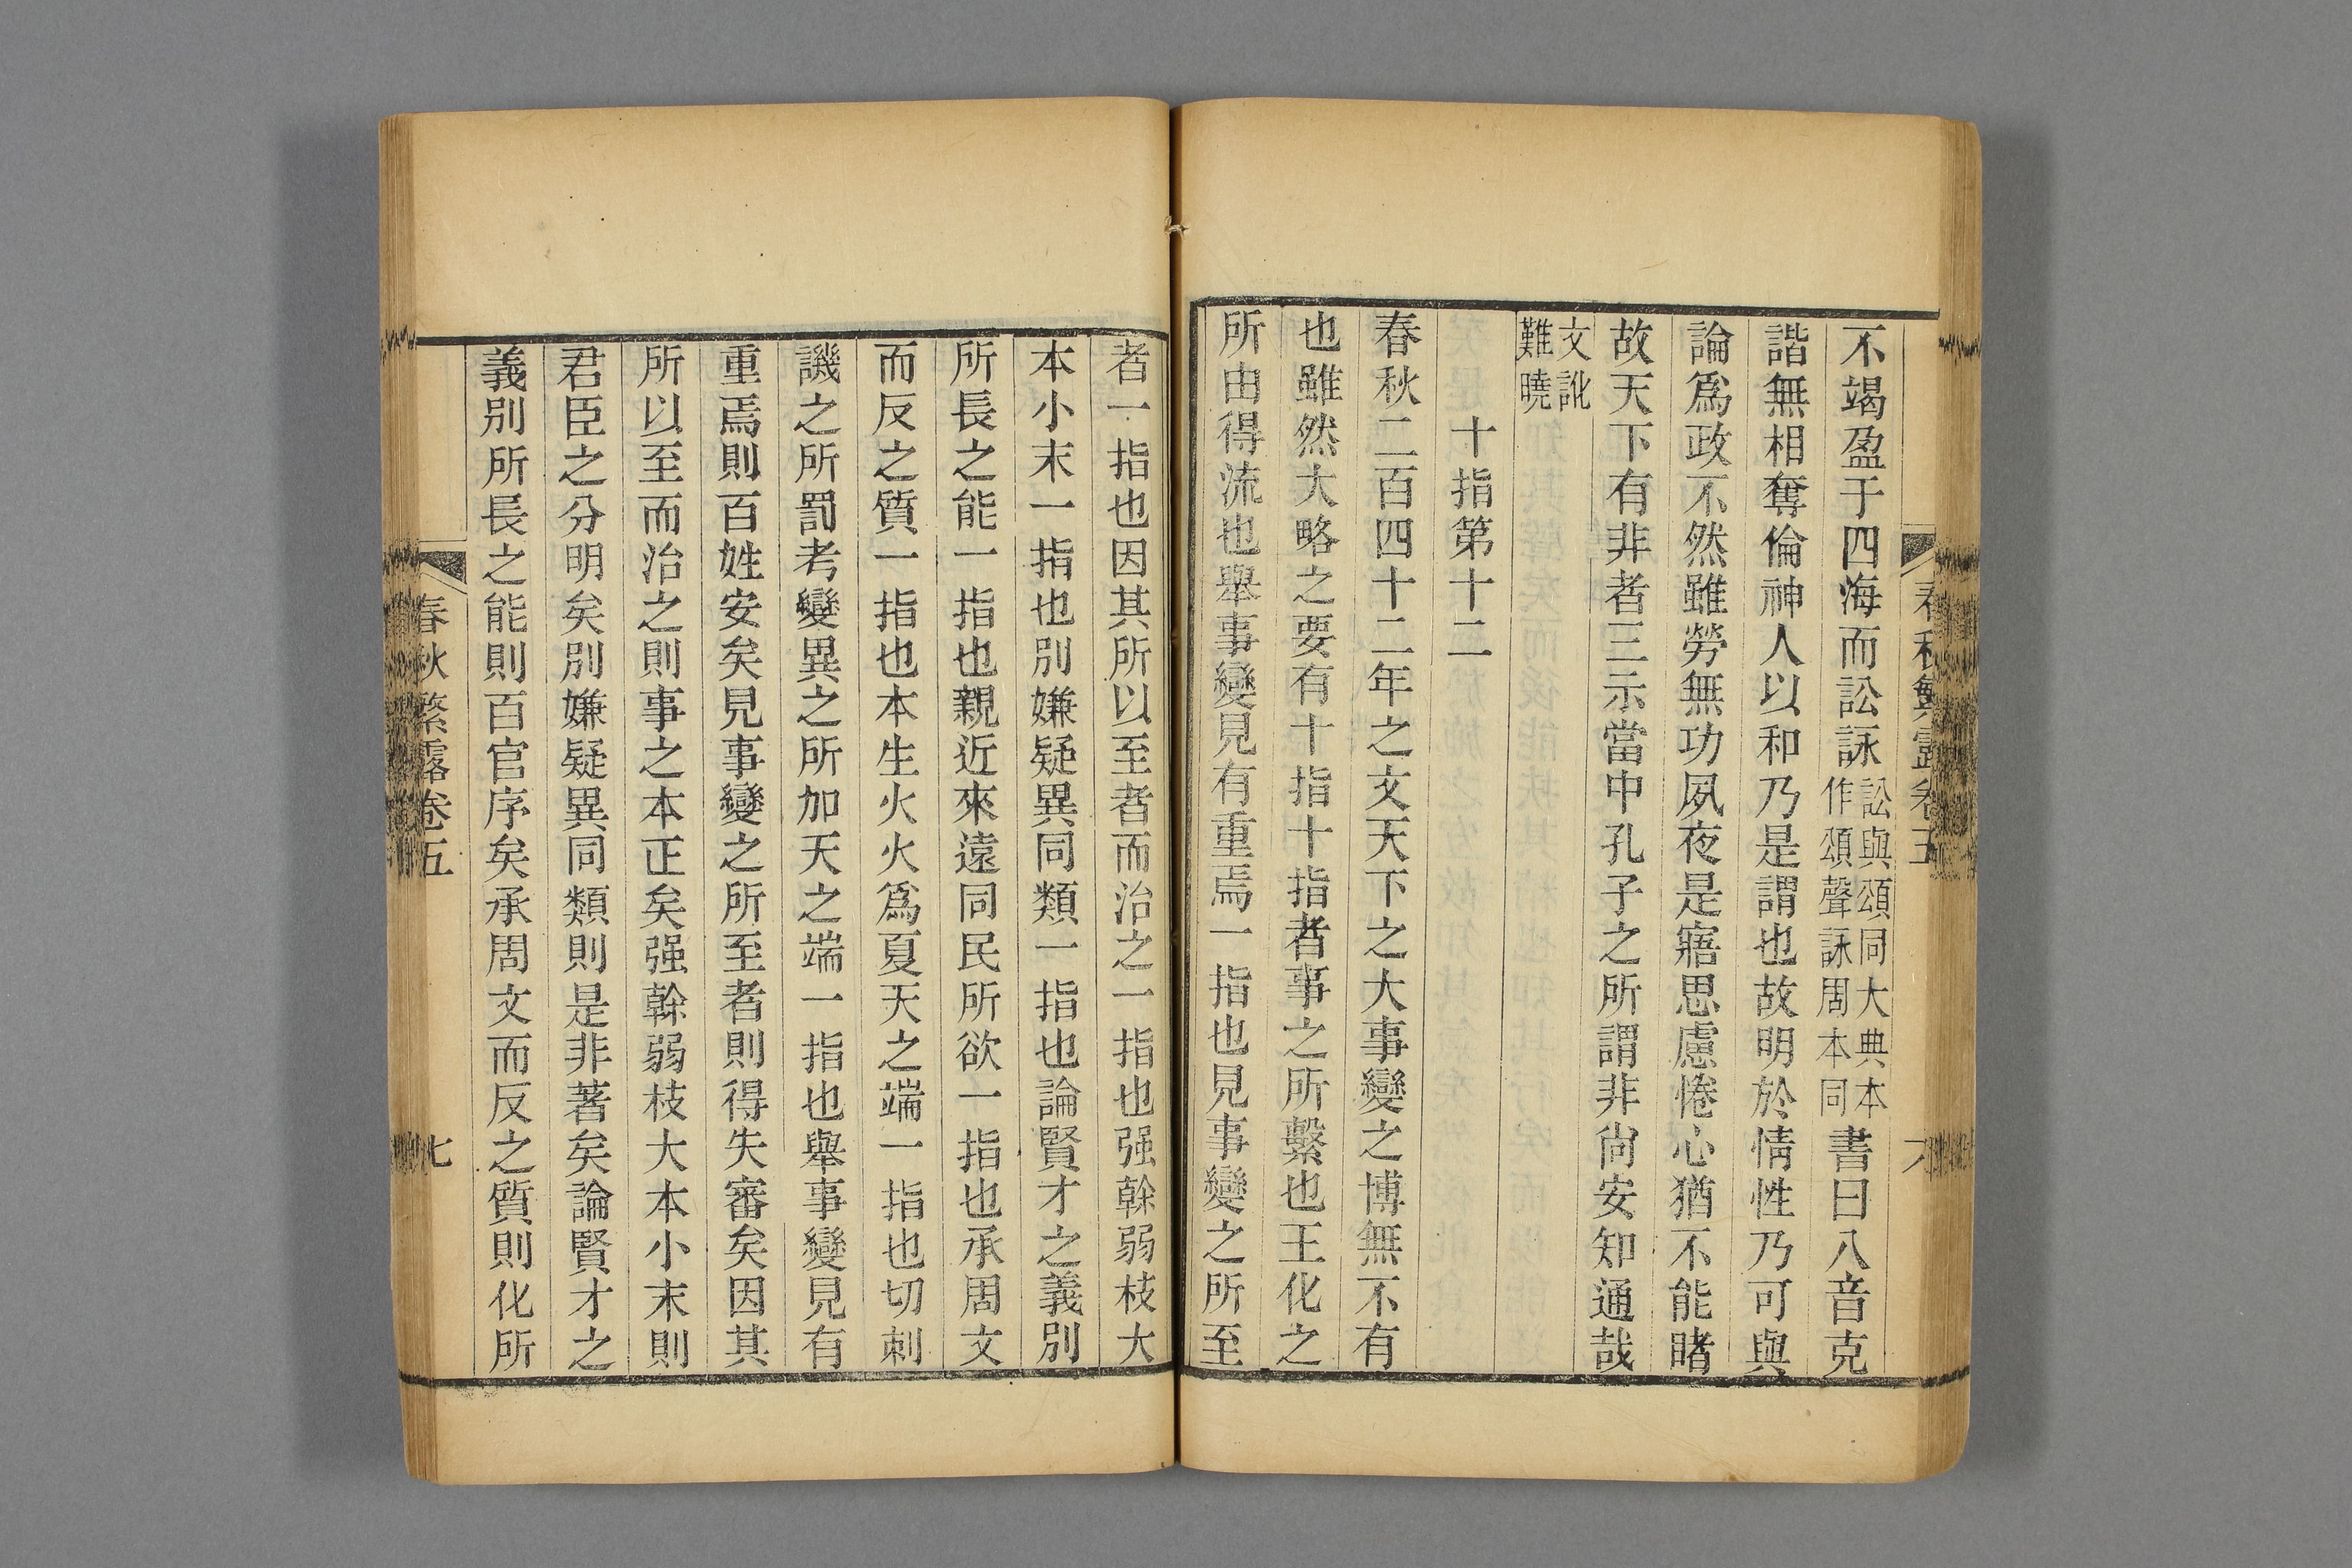 春秋繁露卷五
六
不竭盈于四海而訟詠訟與頌同大典本作頌聲詠周本同書曰八音克
諧無相奪倫神人以和乃是謂也故明於情性乃可與
論爲政不然雖勞無功夙夜是寤思慮惓心猶不能睹
故天下有非者三示當中孔子之所謂非尙安知通哉
文訛難曉
十指第十二
春秋二百四十二年之文天下之大事變之博無不有
也雖然大略之要有十指十指者事之所繫也王化之
所由得流也舉事變見有重焉一指也見事變之所至
者一指也因其所以至者而治之一指也强榦弱枝大
本小末一指也別嫌疑異同類一指也論賢才之義別
所長之能一指也親近來遠同民所欲一指也承周文
而反之質一指也本生火火爲夏天之端一指也切刺
譏之所罰考變異之所加天之端一指也舉事變見有
重焉則百姓安矣見事變之所至者則得失審矣因其
所以至而治之則事之本正矣强榦弱枝大本小末則
君臣之分明矣別嫌疑異同類則是非著矣論賢才之
義別所長之能則百官序矣承周文而反之質則化所
春秋繁露卷五
七